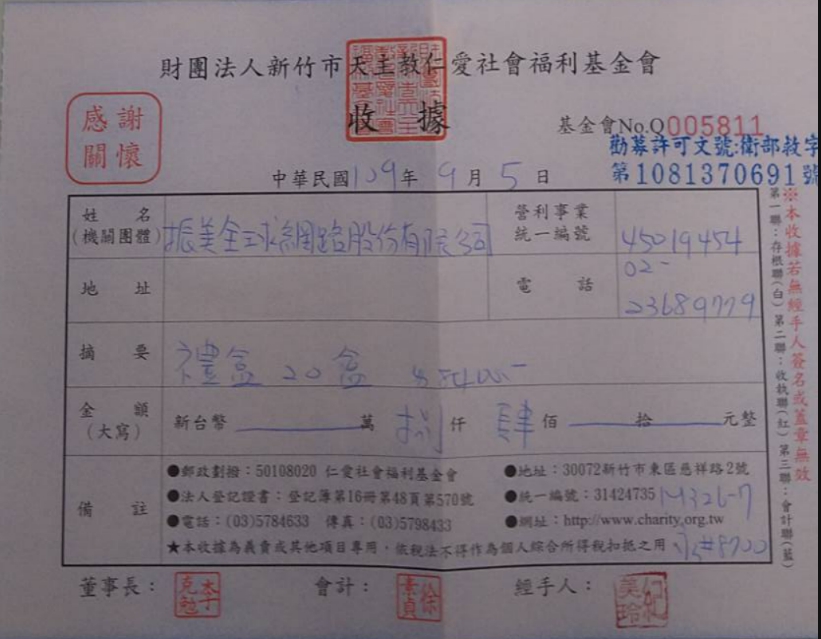 財團法人新竹市天主教仁愛社會福利基金會
收據
感謝
關懷
基金會No.Q005811
勸募許可文號:衛部救字
第1081370691號
中華民國109年9月5日
姓名
(機關團體)
振美全球網路股份有限公司
營利事業
統一編號
45019454
地址
電話
02-
23689779
摘要
禮盒 20盒
金額
(大寫)
新台幣 萬 捌仟 肆佰 拾 元整
備註
●郵政劃撥:50108020 仁愛社會福利基金會
●地址:30072新竹市東區慈祥路2號
●法人登記證書:登記簿第16冊第48頁第570號
●統一編號:31424735
●電話:(03)5784633 傳真:(03)5798433
●網址:http://www.charity.org.tw
★本收據為義賣或其他項目專用,依稅法不得作為個人綜合所得稅扣抵之用
董事長:
李克勉
會計:
徐素貞
經手人:
紀美玲
第一聯:存根聯(白) 第二聯:收執聯(紅) 第三聯:會計聯(藍)
※本收據若無經手人簽名或蓋章無效